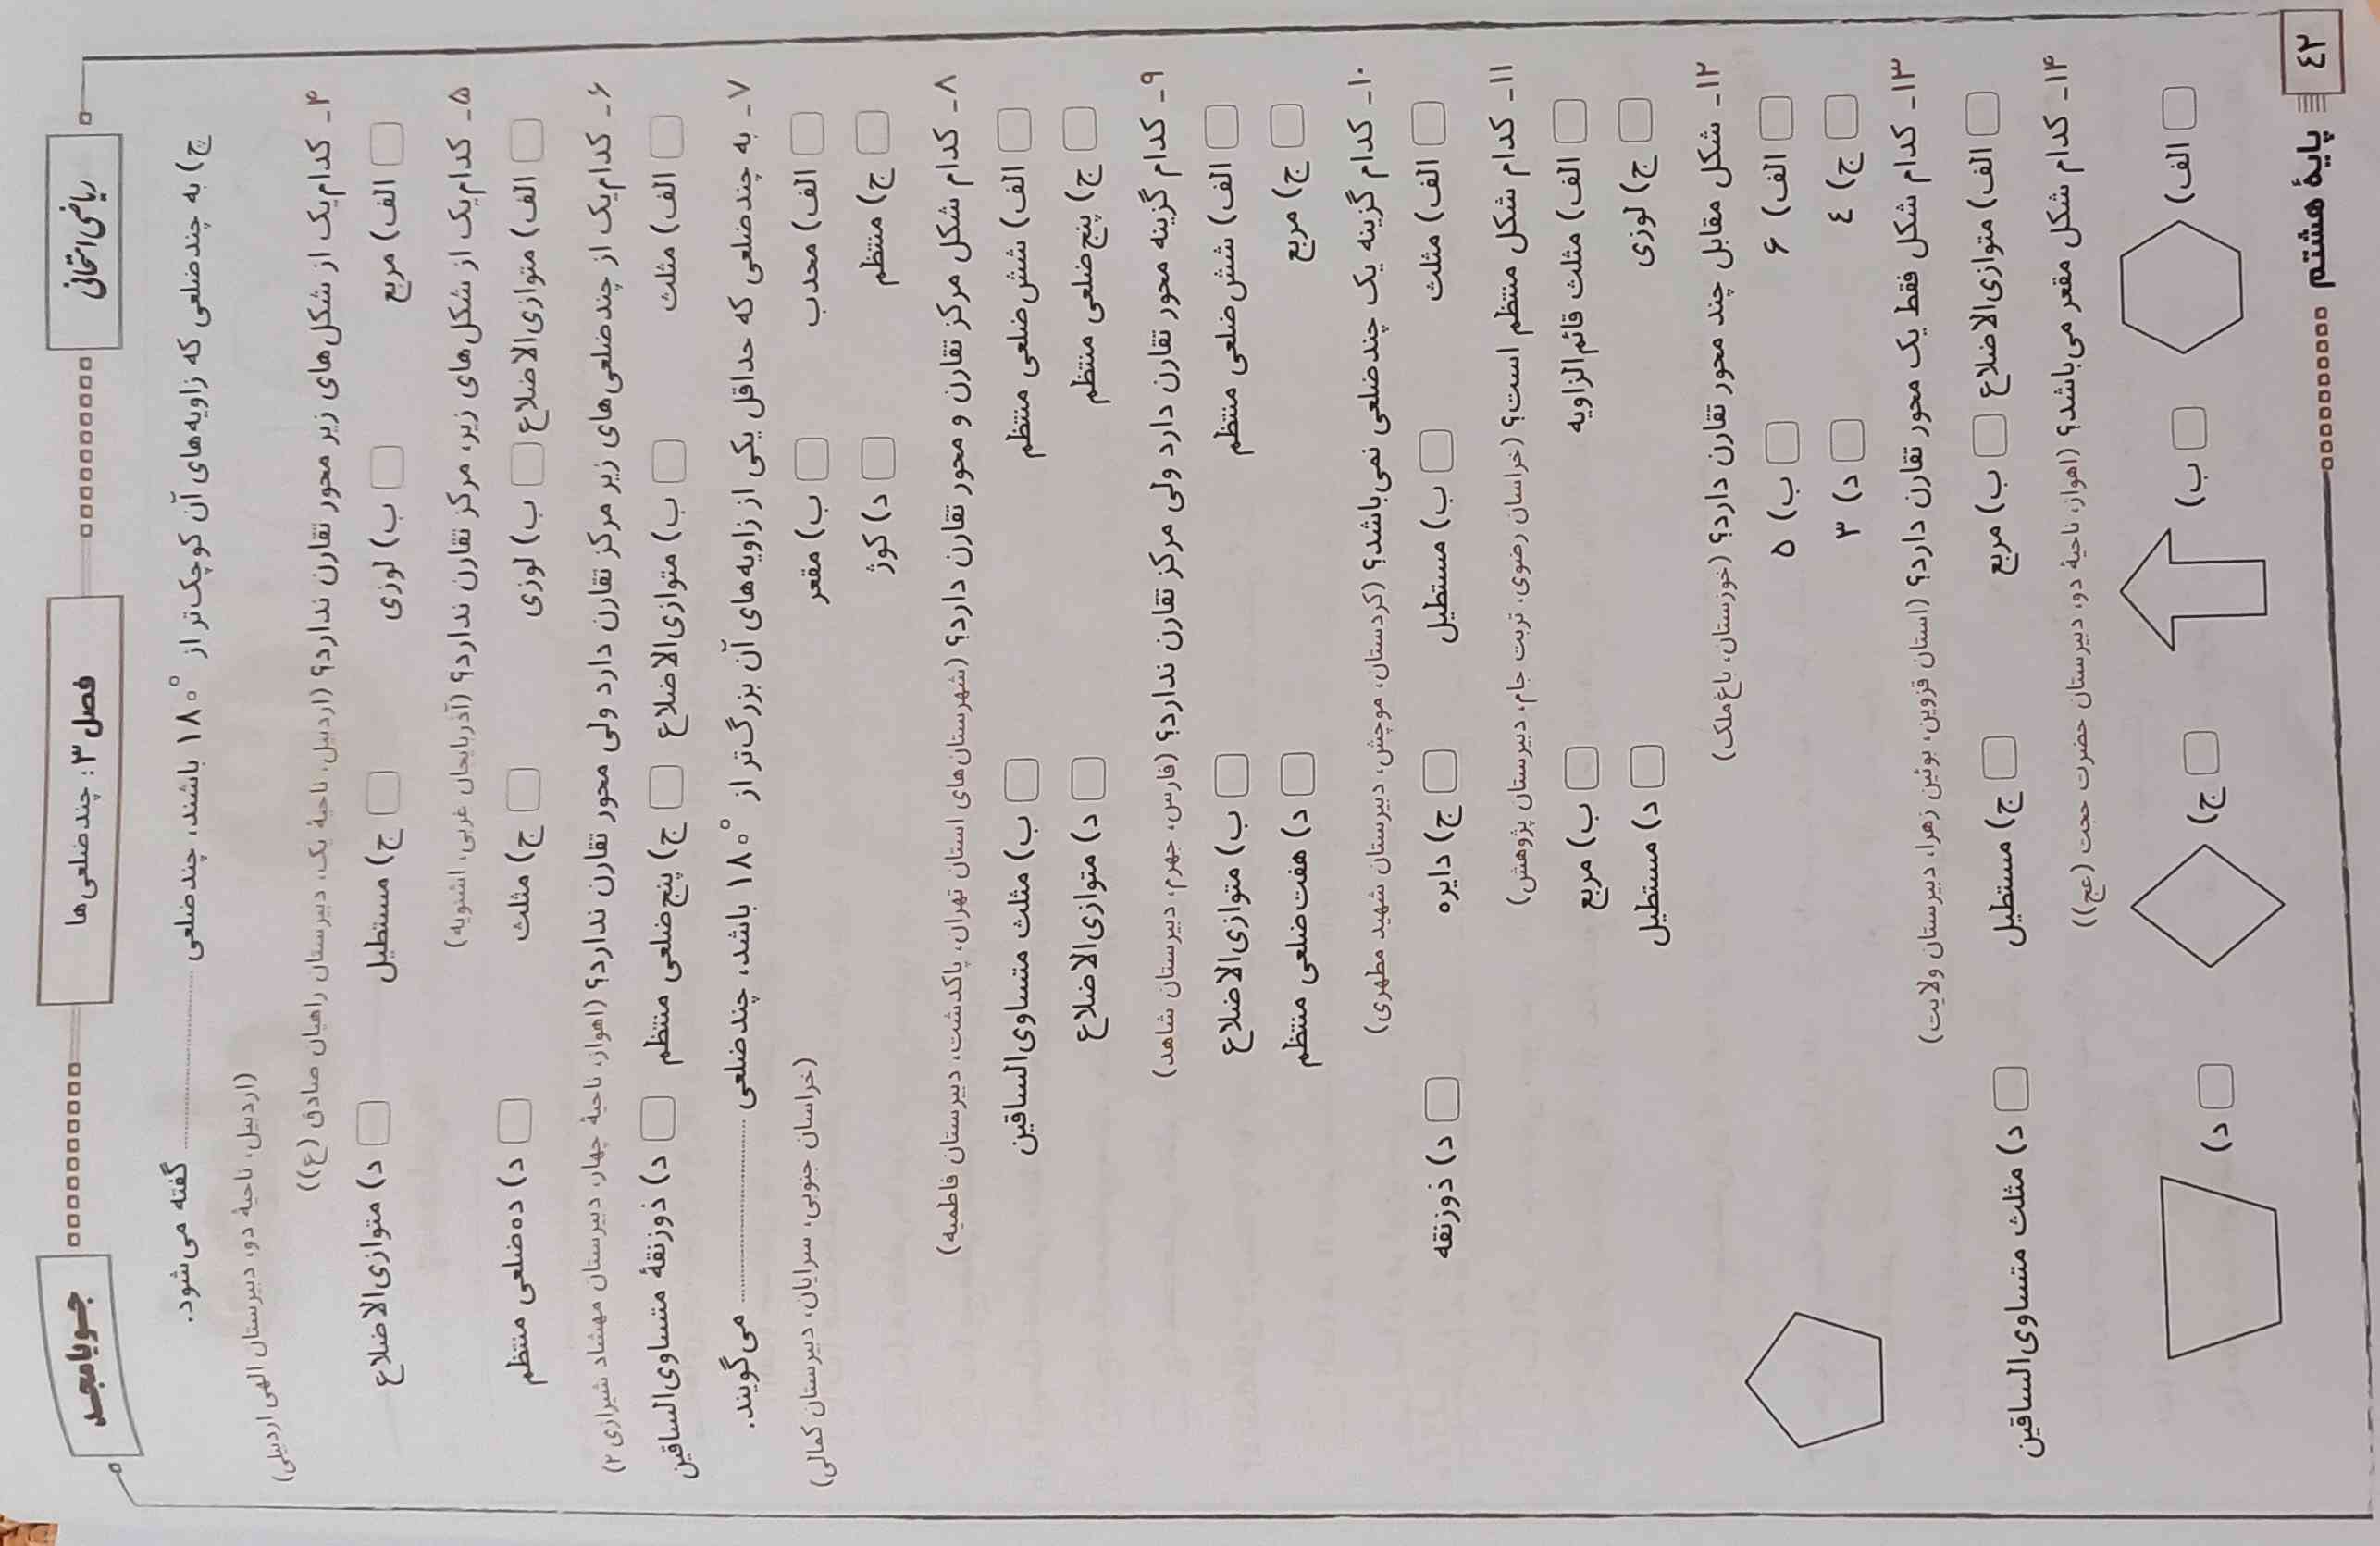 ریاضی امتحانی
فصل ۳: چندضلعی‌ها
جویا مجد
ج) به چندضلعی که زاویه‌های آن کوچک‌تر از ۱۸۰° باشند، چندضلعی .................... گفته می‌شود.
(اردبیل، ناحیهٔ دو، دبیرستان الهی اردبیلی)
۴- کدام‌یک از شکل‌های زیر محور تقارن ندارد؟ (اردبیل، ناحیهٔ یک، دبیرستان راهیان صادق (ع))
الف) مربع □ ب) لوزی □ ج) مستطیل □ د) متوازی‌الاضلاع □
۵- کدام‌یک از شکل‌های زیر، مرکز تقارن ندارد؟ (آذربایجان غربی، اشنویه)
الف) متوازی‌الاضلاع □ ب) لوزی □ ج) مثلث □ د) ده‌ضلعی منتظم □
۶- کدام‌یک از چندضلعی‌های زیر مرکز تقارن دارد ولی محور تقارن ندارد؟ (اهواز، ناحیهٔ چهار، دبیرستان مهشاد شیرازی ۲)
الف) مثلث □ ب) متوازی‌الاضلاع □ ج) پنج‌ضلعی منتظم □ د) ذوزنقهٔ متساوی‌الساقین □
۷- به چندضلعی که حداقل یکی از زاویه‌های آن بزرگ‌تر از ۱۸۰° باشد، چندضلعی .................... می‌گویند.
(خراسان جنوبی، سرایان، دبیرستان کمالی)
الف) محدب □ ب) مقعر □
ج) منتظم □ د) کوژ □
۸- کدام شکل مرکز تقارن و محور تقارن دارد؟ (شهرستان‌های استان تهران، پاکدشت، دبیرستان فاطمیه)
الف) شش‌ضلعی منتظم □ ب) مثلث متساوی‌الساقین □
ج) پنج‌ضلعی منتظم □ د) متوازی‌الاضلاع □
۹- کدام گزینه محور تقارن دارد ولی مرکز تقارن ندارد؟ (فارس، جهرم، دبیرستان شاهد)
الف) شش‌ضلعی منتظم □ ب) متوازی‌الاضلاع □
ج) مربع □ د) هفت‌ضلعی منتظم □
۱۰- کدام گزینه یک چندضلعی نمی‌باشد؟ (کردستان، موچش، دبیرستان شهید مطهری)
الف) مثلث □ ب) مستطیل □ ج) دایره □ د) ذوزنقه □
۱۱- کدام شکل منتظم است؟ (خراسان رضوی، تربت جام، دبیرستان پژوهش)
الف) مثلث قائم‌الزاویه □ ب) مربع □
ج) لوزی □ د) مستطیل □
۱۲- شکل مقابل چند محور تقارن دارد؟ (خوزستان، باغ‌ملک)
الف) ۶ □ ب) ۵ □
ج) ٤ □ د) ۳ □
۱۳- کدام شکل فقط یک محور تقارن دارد؟ (استان قزوین، بوئین زهرا، دبیرستان ولایت)
الف) متوازی‌الاضلاع □ ب) مربع □ ج) مستطیل □ د) مثلث متساوی‌الساقین □
۱۴- کدام شکل مقعر می‌باشد؟ (اهواز، ناحیهٔ دو، دبیرستان حضرت حجت (عج))
الف) □ ب) □ ج) □ د) □
٤٢ پایهٔ هشتم